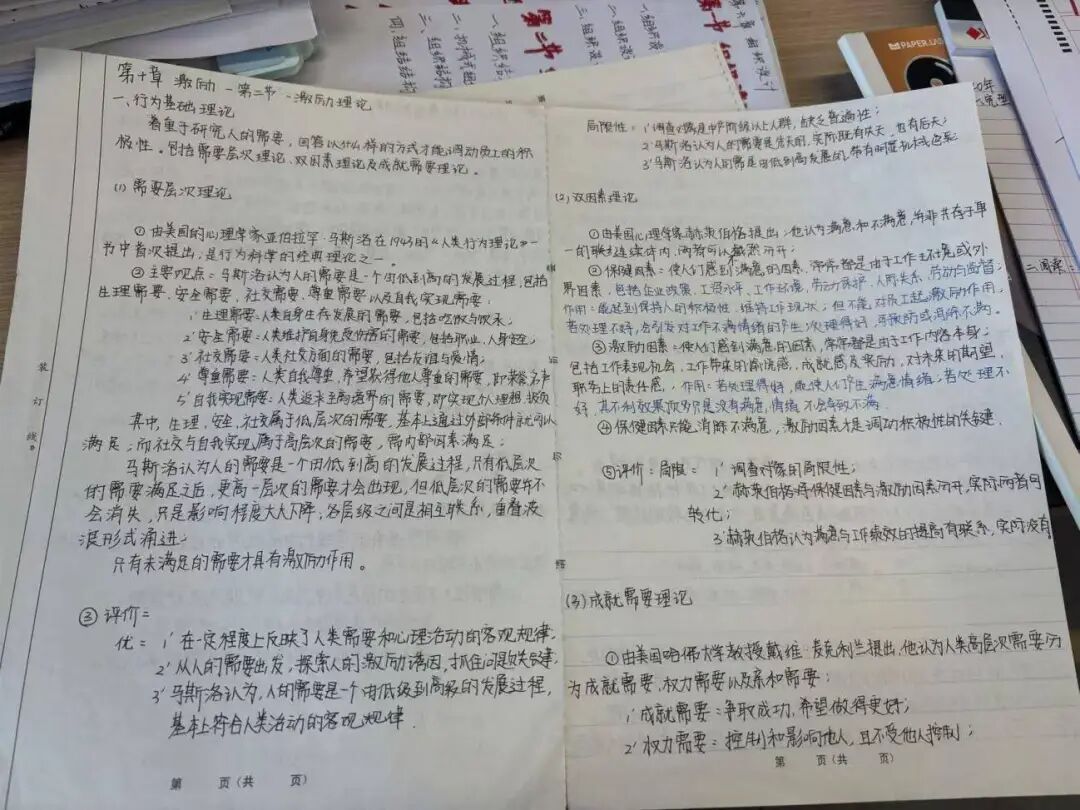 第十章 激励 - 第二节 - 激励理论
一、行为基础理论
着重于研究人的需要，回答以什么样的方式才能调动员工的积
极性。包括需要层次理论、双因素理论及成就需要理论。
(1) 需要层次理论
①由美国的心理学家亚伯拉罕·马斯洛在1943的《人类行为理论》一
书中首次提出，是行为科学的经典理论之一。
②主要观点：马斯洛认为人的需要是一个由低到高的发展过程，包括
生理需要、安全需要、社交需要、尊重需要以及自我实现需要：
1' 生理需要：人类自身生存发展的需要，包括吃饭与饮水；
2' 安全需要：人类维护自身免受伤害的需要，包括职业、人身安全；
3' 社交需要：人类社交方面的需要，包括友谊与爱情；
4' 尊重需要：人类自我尊重，希望获得他人尊重的需要，即荣誉
5' 自我实现需要：人类追求至高境界的需要，即实现个人理想、抱负
其中，生理、安全、社交属于低层次的需要，基本上通过外部条件就可以
满足；而社交与自我实现属于高层次的需要，需内部因素满足；
马斯洛认为人的需要是一个由低到高的发展过程，只有低层次
的需要满足之后，更高一层次的需要才会出现，但低层次的需要并不
会消失，只是影响程度大大下降，各层级之间是相互联系，重叠波
浪形式涌进；
只有未满足的需要才具有激励作用。
③ 评价：
优： 1' 在一定程度上反映了人类需要和心理活动的客观规律；
2' 从人的需要出发，探索人的激励诱因，抓住问题关键；
3' 马斯洛认为，人的需要是一个由低级到高级的发展过程，
基本上符合人类活动的客观规律.
第 页（共 页）
装
订
线
局限性： 1' 调查对象是中产阶级以上人群，缺乏普遍性；
2' 马斯洛认为人的需要是先天的，实际既有先天，也有后天；
3' 马斯洛认为人的需是由低到高发展的，带有明显机械色彩
(2) 双因素理论
①由美国心理学家赫茨伯格提出；他认为满意和不满意，并非共存于单
一的联连续体内，两者可以截然分开；
②保健因素：使人们感到不满意的因素，常常都是由于工作环境或外
界因素，包括企业政策、工资水平、工作环境、劳动保护、人际关系、劳动与监督；
作用：能起到保持人的积极性、维持工作现状；但不能对员工起激励作用，
若处理不好，会引发对工作不满情绪的产生，处理得好，可预防或消除不满。
③激励因素：使人们感到满意的因素，常常都是由于工作内容本身；
包括工作表现机会、工作带来的愉悦感、成就感及奖励，对未来的期望，
职务上的责任感；作用：若处理得好，能使人们产生满意情绪；若处理不
好，其不利效果顶多只是没有满意情绪，不会导致不满.
④保健因素只能消除不满意，激励因素才是调动积极性的关键.
⑤评价：局限： 1' 调查对象的局限性；
2' 赫茨伯格将保健因素与激励因素分开，实际两者可
转化；
3' 赫茨伯格认为满意与工作绩效的提高有联系，实际没有
(3) 成就需要理论
①由美国哈佛大学教授戴维·麦克利兰提出，他认为人类高层次需要分
为成就需要、权力需要以及亲和需要；
1' 成就需要：争取成功，希望做得更好；
2' 权力需要：控制和影响他人，且不受他人控制；
第 页（共 页）
第二节
PAPER